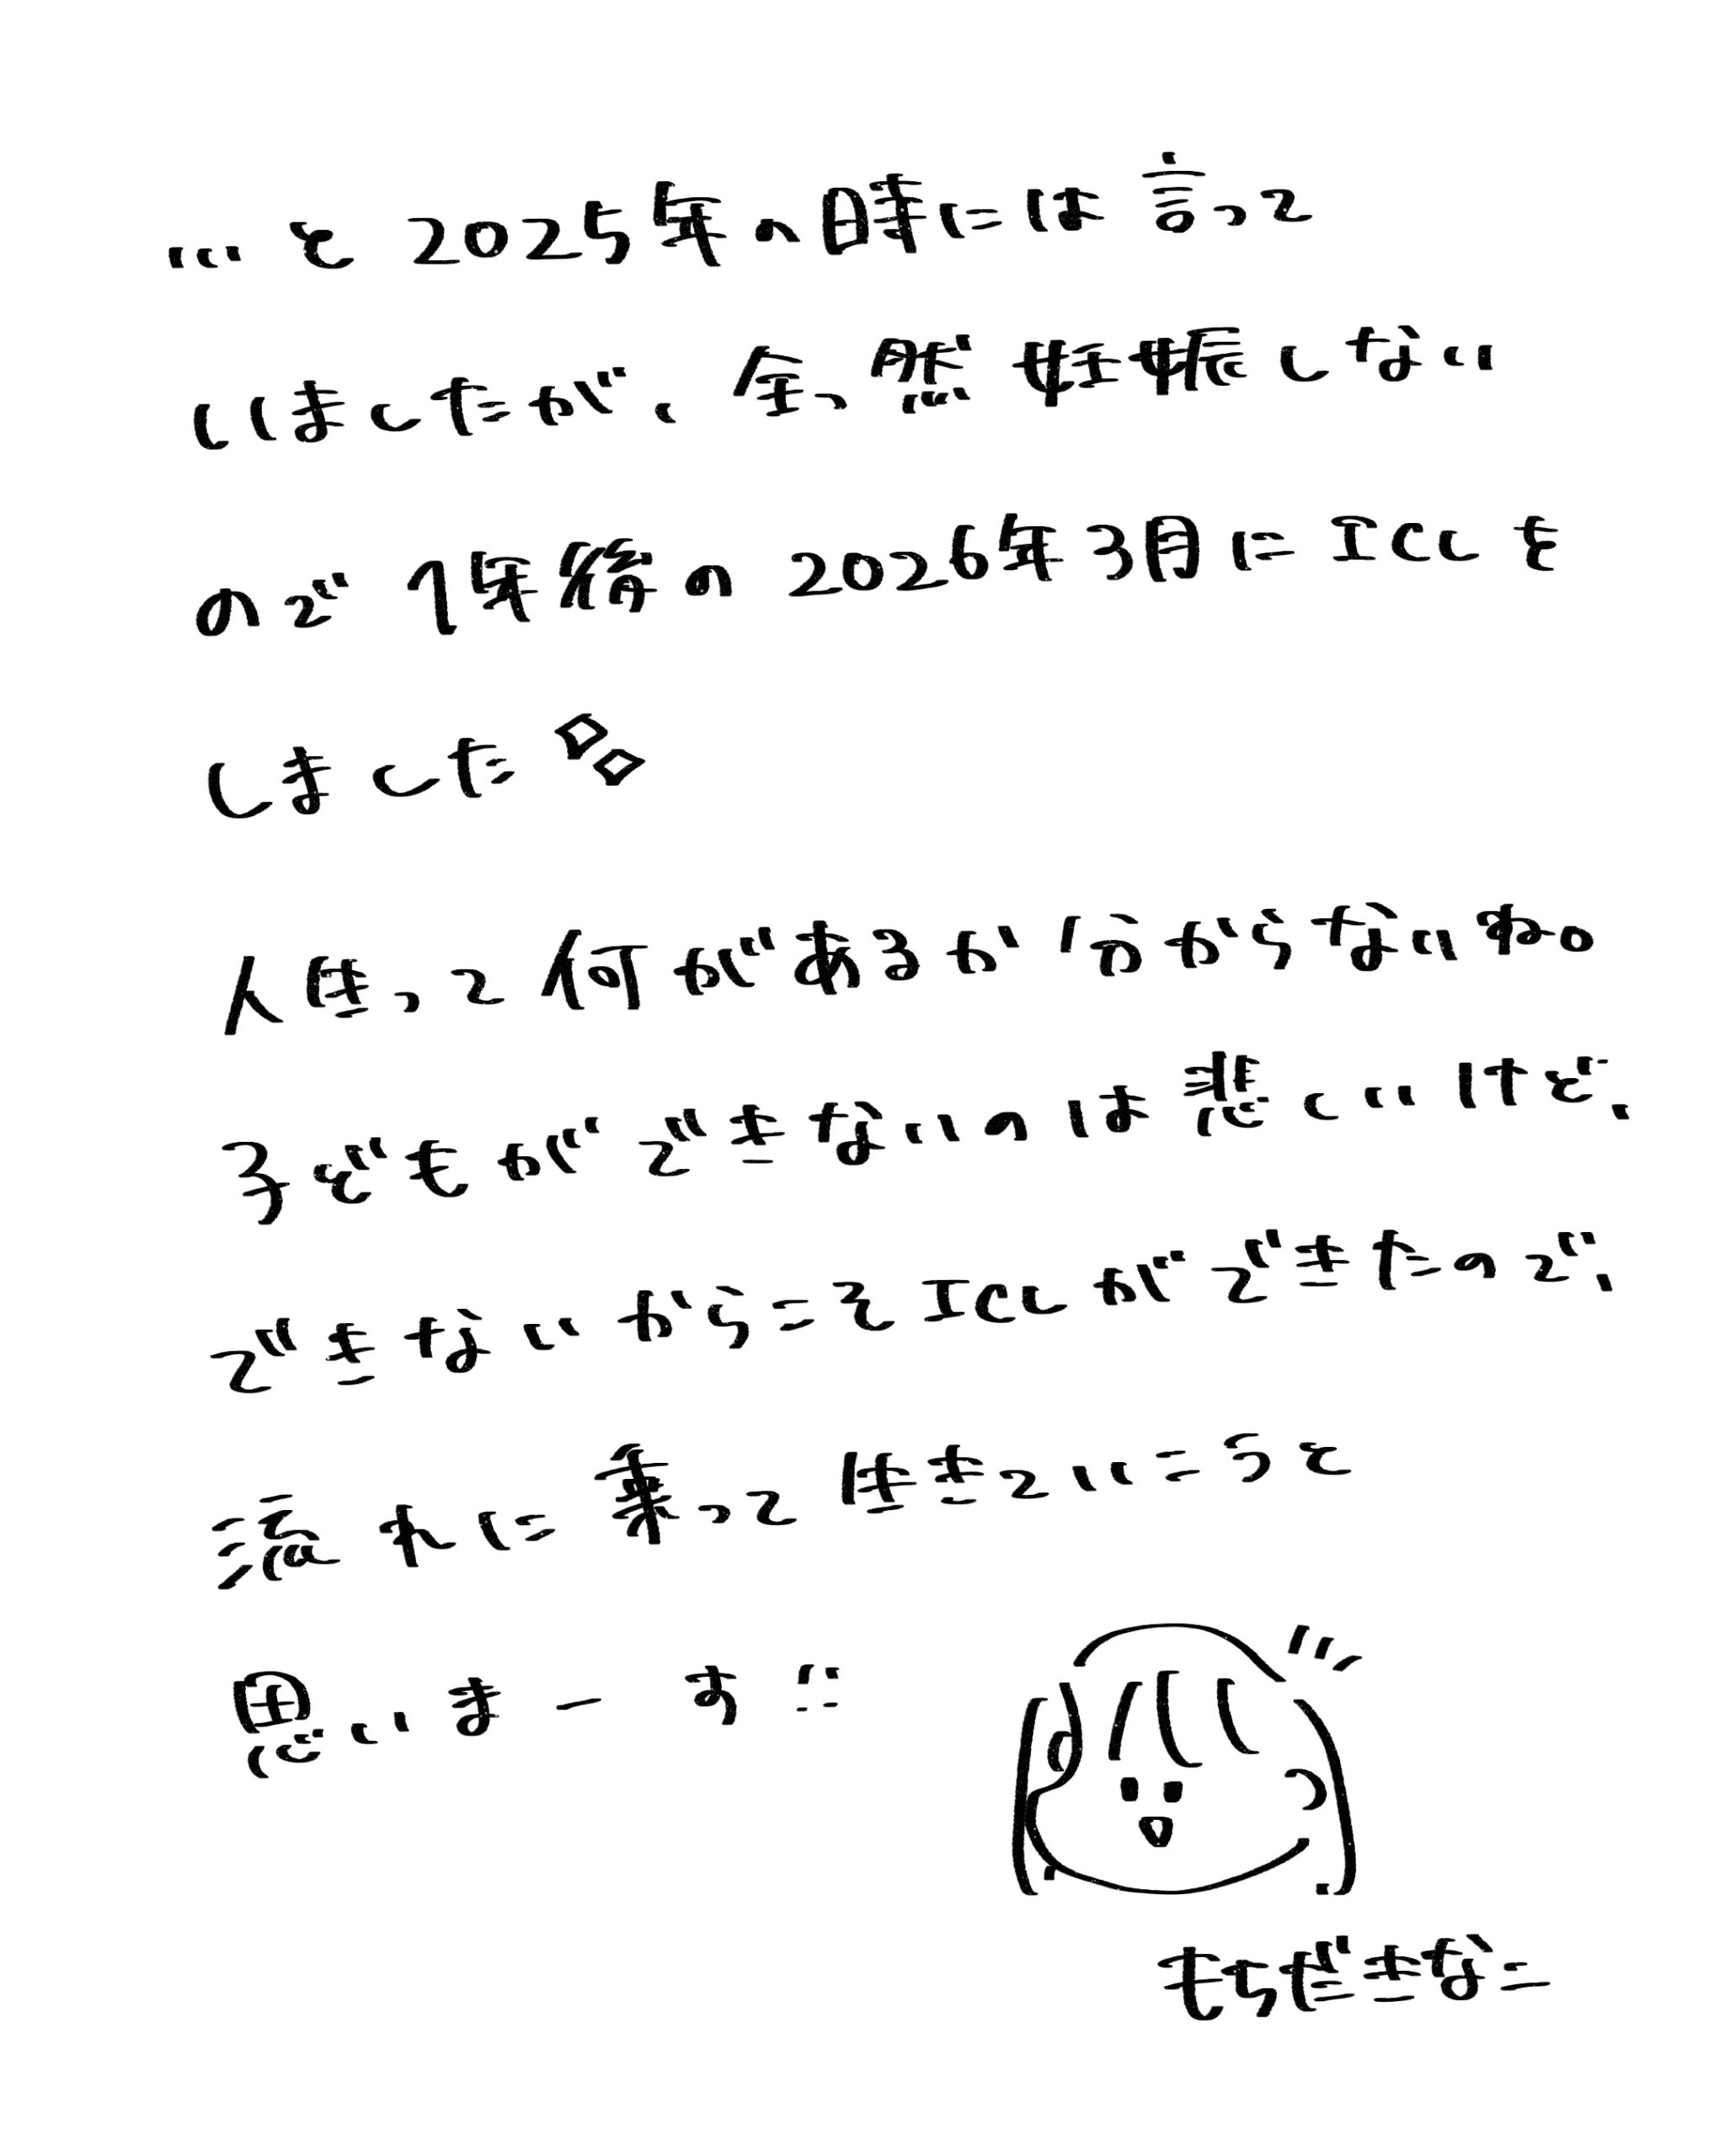 …と2025年の時には言って
いましたが、全っ然妊娠しない
ので1年後の2026年3月にICLを
しました
人生って何があるか分からないね。
子どもができないのは悲しいけど、
できないからこそICLができたので、
流れに乗って生きていこうと
思いまーす
もちだきなこ